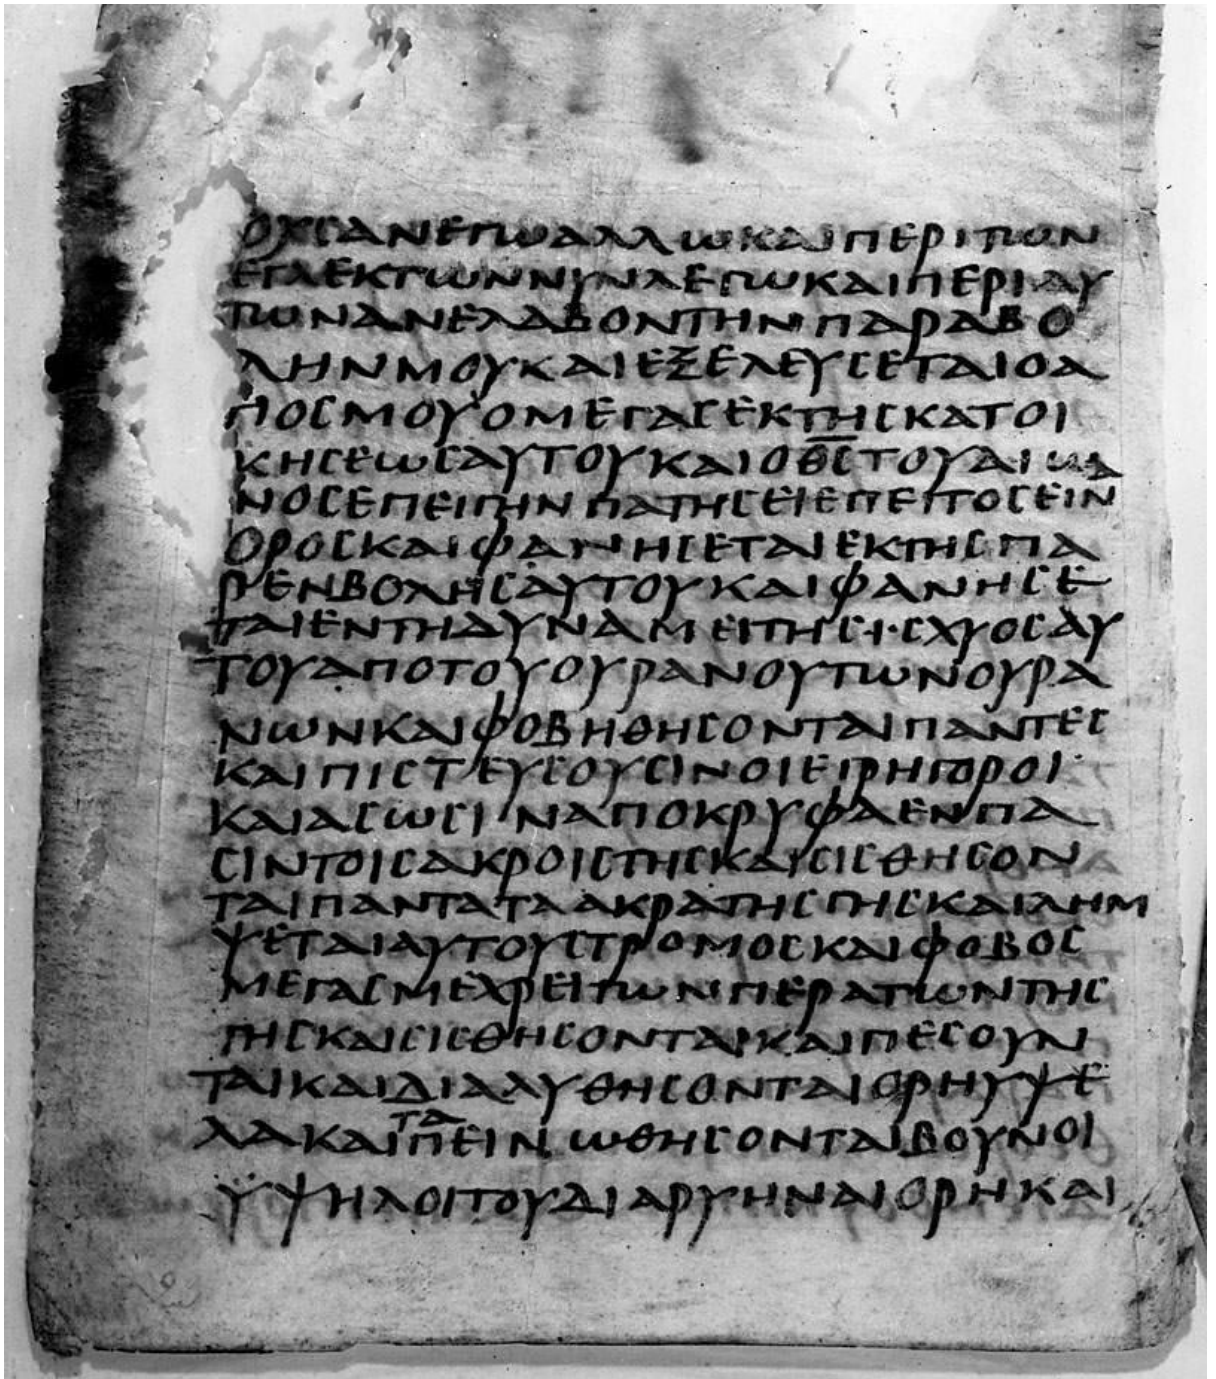 ΟΧΙΑΝΕΓΩΑΛΛΩΚΑΙΠΕΡΙΤΩΝ
ΕΓΛΕΚΤΩΝΝΥΝΛΕΓΩΚΑΙΠΕΡΙΑΥ
ΤΩΝΑΝΕΛΑΒΟΝΤΗΝΠΑΡΑΒΟ
ΛΗΝΜΟΥΚΑΙΕΞΕΛΕΥϹΕΤΑΙΟΑ
ΓΙΟϹΜΟΥΟΜΕΓΑϹΕΚΤΗϹΚΑΤΟΙ
ΚΗϹΕΩϹΑΥΤΟΥΚΑΙΟΘ̅Ϲ̅ΤΟΥΑΙΩ
ΝΟϹΕΠΕΙΓΗΝΠΑΤΗϹΕΙΕΠΕΙΤΟϹΕΙΝΑ
ΟΡΟϹΚΑΙΦΑΝΗϹΕΤΑΙΕΚΤΗϹΠΑ
ΡΕΝΒΟΛΗϹΑΥΤΟΥΚΑΙΦΑΝΗϹΕ
ΤΑΙΕΝΤΗΔΥΝΑΜΕΙΤΗϹΙϹΧΥΟϹΑΥ
ΤΟΥΑΠΟΤΟΥΟΥΡΑΝΟΥΤΩΝΟΥΡΑ
ΝΩΝΚΑΙΦΟΒΗΘΗϹΟΝΤΑΙΠΑΝΤΕϹ
ΚΑΙΠΙϹΤΕΥϹΟΥϹΙΝΟΙΕΓΡΗΓΟΡΟΙ
ΚΑΙΑϹΩϹΙΝΑΠΟΚΡΥΦΑΕΝΠΑ
ϹΙΝΤΟΙϹΑΚΡΟΙϹΤΗϹΚΑΙϹΙϹΘΗϹΟΝ
ΤΑΙΠΑΝΤΑΤΑΑΚΡΑΤΗϹΓΗϹΚΑΙΛΗΜ
ΨΕΤΑΙΑΥΤΟΥϹΤΡΟΜΟϹΚΑΙΦΟΒΟϹ
ΜΕΓΑϹΜΕΧΡΕΙΤΩΝΠΕΡΑΤΩΝΤΗϹ
ΓΗϹΚΑΙϹΙϹΘΗϹΟΝΤΑΙΚΑΙΠΕϹΟΥΝ
ΤΑΙΚΑΙΔΙΑΛΥΘΗϹΟΝΤΑΙΟΡΗΥΨΕ
ΛΑΚΑΙΤΑΠΕΙΝΩΘΗϹΟΝΤΑΙΒΟΥΝΟΙ
ΫΨΗΛΟΙΤΟΥΔΙΑΡΥΗΝΑΙΟΡΗΚΑΙ